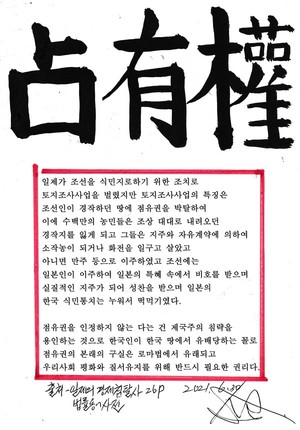 占有權
일제가 조선을 식민지로하기 위한 조치로
토지조사사업을 벌렸지만 토지조사사업의 특징은
조선인이 경작하던 땅에 점유권을 박탈하여
이에 수백만의 농민들은 조상 대대로 내려오던
경작지를 잃게 되고 그들은 지주와 자유계약에 의하여
소작농이 되거나 화전을 일구고 살았고
아니면 만주 등으로 이주하였고 조선에는
일본인이 이주하여 일본의 특혜 속에서 비호를 받으며
실질적인 지주가 되어 성찬을 받으며 일본의
한국 식민통치는 누워서 떡먹기였다.
점유권을 인정하지 않는 다는 건 제국주의 침략을
용인하는 것으로 한국인이 한국 땅에서 유배당하는 꼴로
점유권의 본래의 구실은 로마법에서 유래되고
우리사회 평화와 질서유지를 위해 반드시 필요한 권리다.
출처-일제의 경제침탈사 26P 2021.
법률용어사전